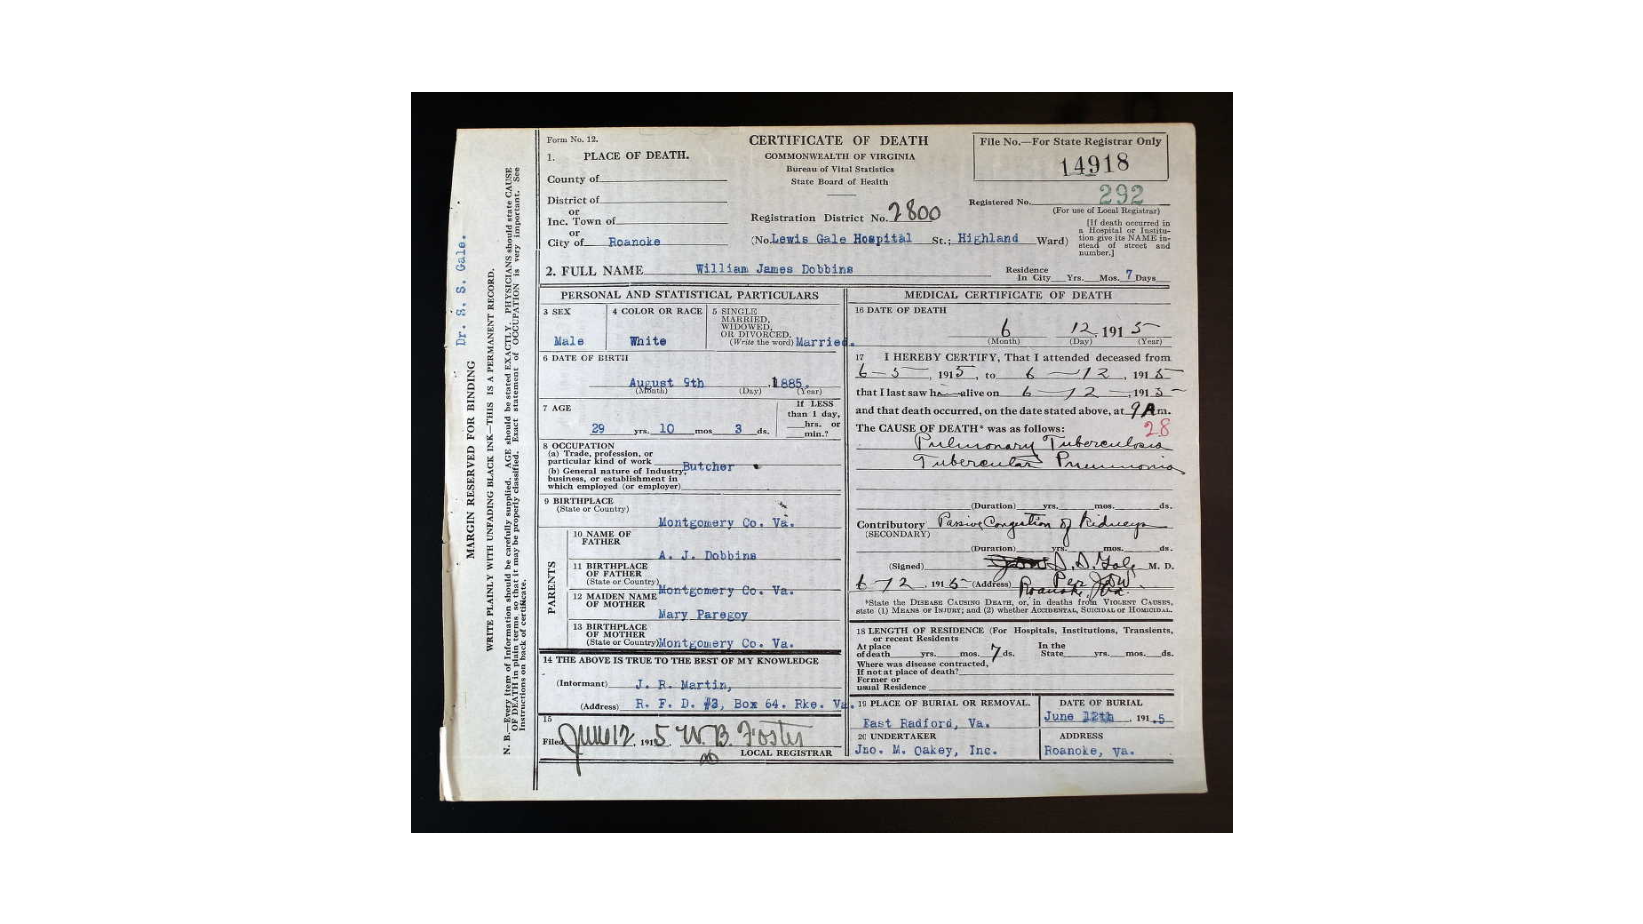 Form No. 12.
1. PLACE OF DEATH.
County of
District of
or
Inc. Town of
or
City of Roanoke
CERTIFICATE OF DEATH
COMMONWEALTH OF VIRGINIA
Bureau of Vital Statistics
State Board of Health
Registration District No. 2800
(No. Lewis Gale Hospital St.; Highland Ward)
File No.—For State Registrar Only
14918
292
Registered No.
(For use of Local Registrar)
[If death occurred in
a Hospital or Institu-
tion give its NAME in-
stead of street and
number.]
2. FULL NAME William James Dobbins
Residence
In City Yrs. Mos. 7 Days
PERSONAL AND STATISTICAL PARTICULARS
3 SEX
Male
4 COLOR OR RACE
White
5 SINGLE
MARRIED,
WIDOWED,
OR DIVORCED.
(Write the word) Married.
6 DATE OF BIRTH
August 9th , 1885.
(Month) (Day) (Year)
7 AGE
29 yrs. 10 mos 3 ds.
If LESS
than 1 day,
hrs. or
min.?
8 OCCUPATION
(a) Trade, profession, or
particular kind of work Butcher
(b) General nature of Industry,
business, or establishment in
which employed (or employer)
9 BIRTHPLACE
(State or Country)
Montgomery Co. Va.
PARENTS
10 NAME OF
FATHER
A. J. Dobbins
11 BIRTHPLACE
OF FATHER
(State or Country) Montgomery Co. Va.
12 MAIDEN NAME
OF MOTHER
Mary Paregoy
13 BIRTHPLACE
OF MOTHER
(State or Country) Montgomery Co. Va.
14 THE ABOVE IS TRUE TO THE BEST OF MY KNOWLEDGE
(Informant) J. R. Martin,
(Address) R. F. D. #3, Box 64. Rke. Va.
15
Filed June 12, 1915 W. B. Foster
LOCAL REGISTRAR
MEDICAL CERTIFICATE OF DEATH
16 DATE OF DEATH
6 12, 1915
(Month) (Day) (Year)
17 I HEREBY CERTIFY, That I attended deceased from
6-5, 1915, to 6-12, 1915
that I last saw h alive on 6-12, 1915
and that death occurred, on the date stated above, at 9 A m.
The CAUSE OF DEATH* was as follows:
28
Pulmonary Tuberculosis
Tubercular Pneumonia
(Duration) yrs. mos. ds.
Contributory Passive Congestion of Kidneys
(SECONDARY)
(Duration) yrs. mos. ds.
(Signed) S. S. Gale M. D.
6-12, 1915 (Address) Roanoke, Va.
Per
*State the DISEASE CAUSING DEATH, or, in deaths from VIOLENT CAUSES,
state (1) MEANS OF INJURY; and (2) whether ACCIDENTAL, SUICIDAL or HOMICIDAL.
18 LENGTH OF RESIDENCE (For Hospitals, Institutions, Transients,
or recent Residents
At place
of death yrs. mos. 7 ds.
In the
State yrs. mos. ds.
Where was disease contracted,
If not at place of death?
Former or
usual Residence
19 PLACE OF BURIAL OR REMOVAL.
East Radford, Va.
DATE OF BURIAL
June 12th , 191.5
20 UNDERTAKER
Jno. M. Oakey, Inc.
ADDRESS
Roanoke, Va.
Dr. S. S. Gale.
MARGIN RESERVED FOR BINDING
WRITE PLAINLY WITH UNFADING BLACK INK—THIS IS A PERMANENT RECORD.
N. B.—Every item of information should be carefully supplied. AGE should be stated EXACTLY. PHYSICIANS should state CAUSE
OF DEATH in plain terms so that it may be properly classified. Exact statement of OCCUPATION is very important. See
instructions on back of certificate.